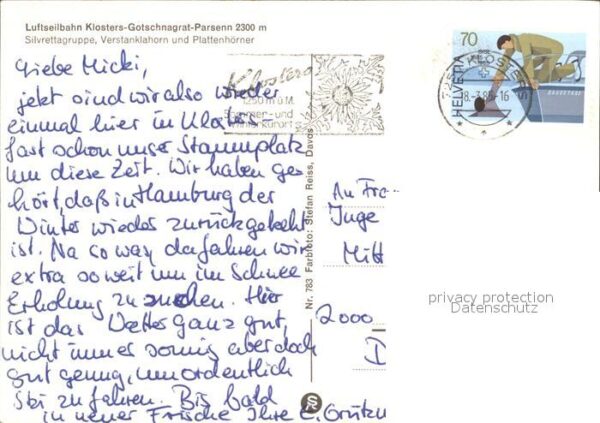 Luftseilbahn Klosters-Gotschnagrat-Parsenn 2300 m
Silvrettagruppe, Verstanklahorn und Plattenhörner
Liebe Micki,
jetzt sind wir also wieder
einmal hier in Klosters –
fast schon unser Stammplatz
um diese Zeit. Wir haben ge-
hört, daß in Hamburg der
Winter wieder zurückgekehrt
ist. Na so was, da fahren wir
extra so weit um im Schnee
Erholung zu suchen. Hier
ist das Wetter ganz gut,
nicht immer sonnig aber doch
gut genug, um ordentlich
Ski zu fahren. Bis bald
in neuer Frische Ihre E.
Klosters
1250 m ü M.
Sommer- und
Winterkurort
70
HELVETIA
KLOSTERS
Nr. 783 Farbfoto: Stefan Reiss, Davos
An Fra
Inge
Mitt
2000
D
privacy protection
Datenschutz